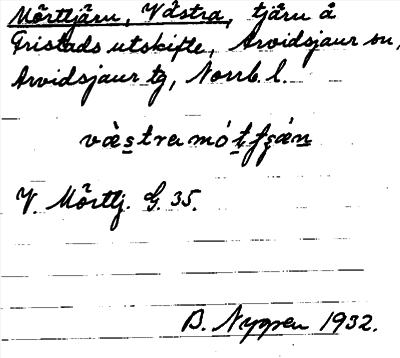 Mörttjärn, Västra, tjärn å
Gristads utskifte, Arvidsjaur sn,
Arvidsjaur tg, Norrb. l.
V. Mörttj. G. 35.
B. Nygren 1932.